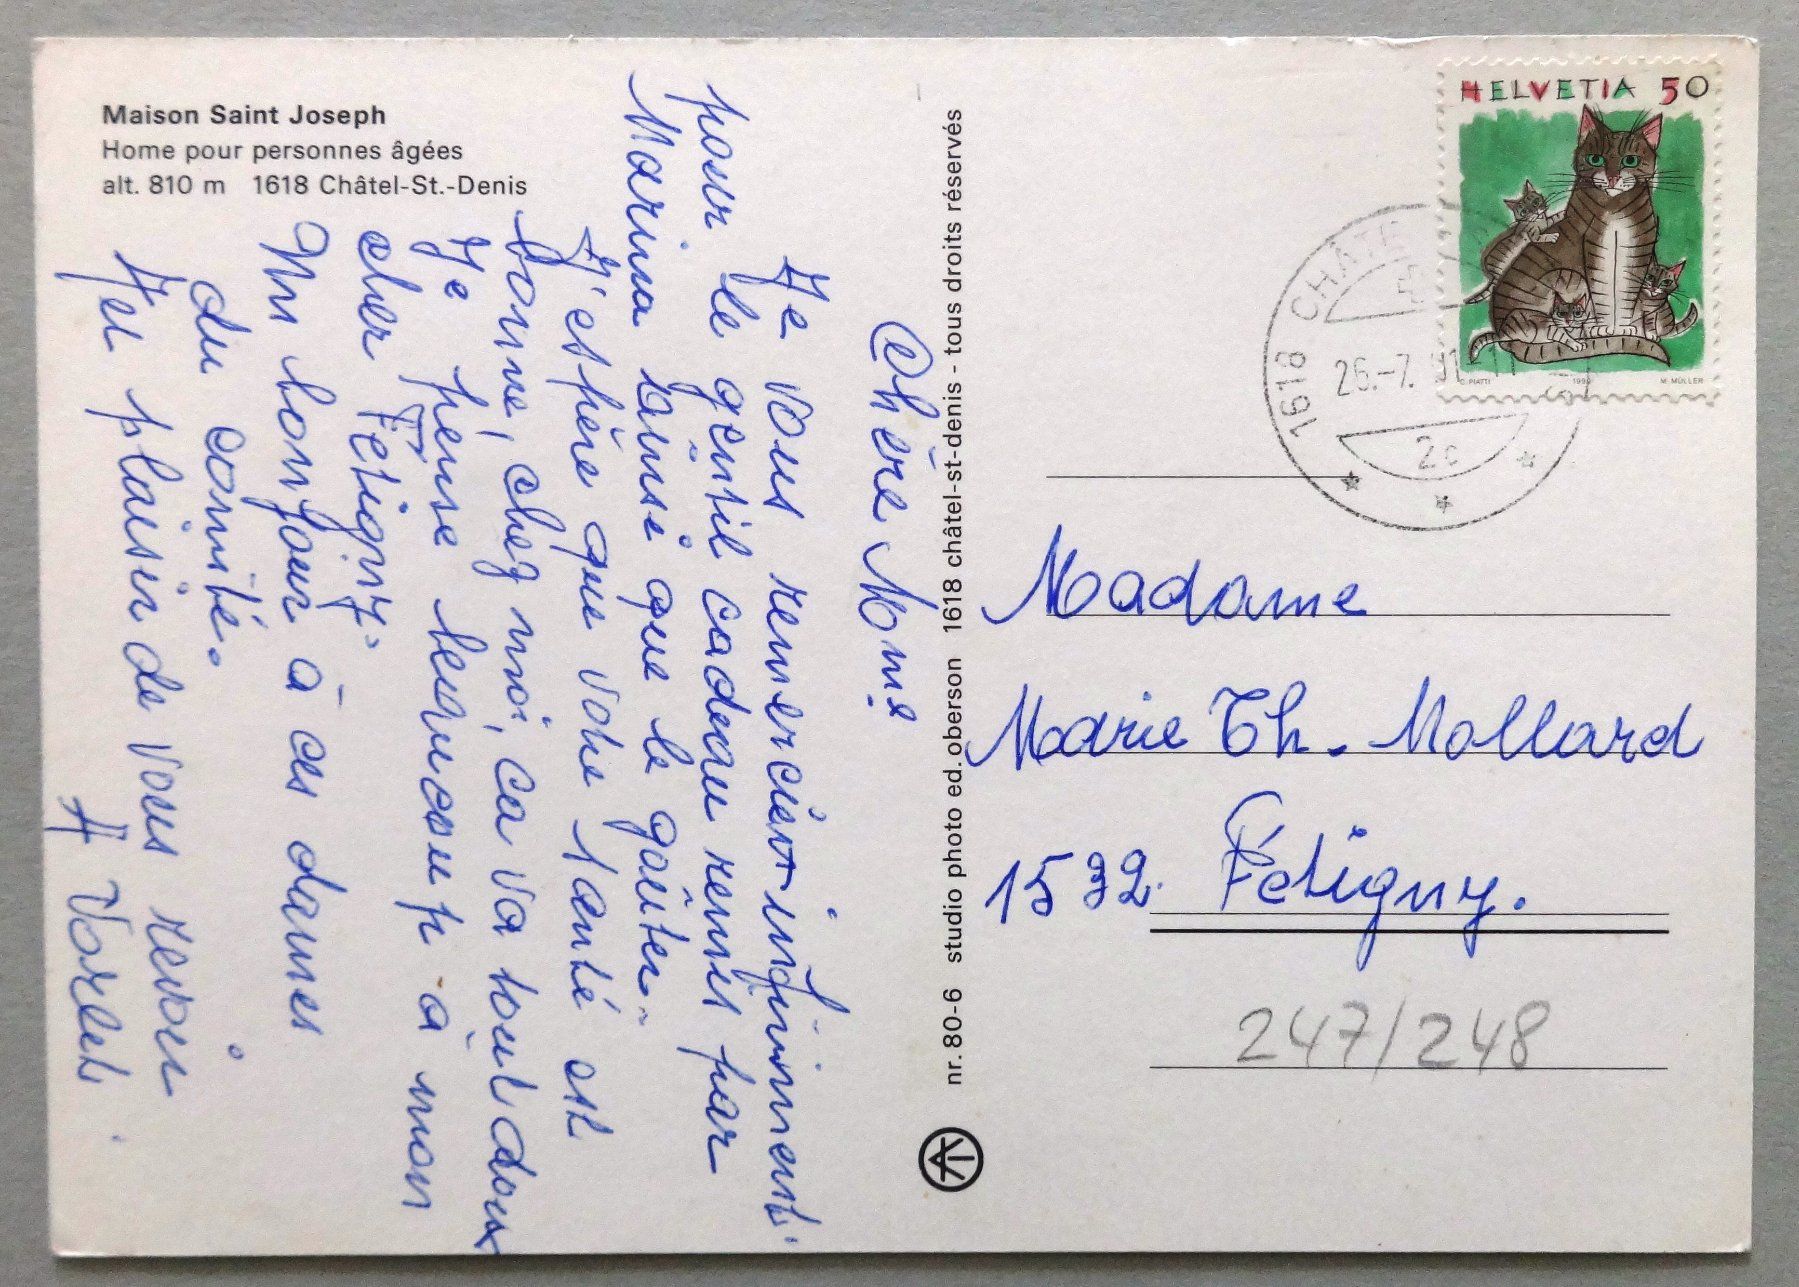 Maison Saint Joseph
Home pour personnes âgées
alt. 810 m 1618 Châtel-St.-Denis
Chère Mme
Je vous remercie infiniment
pour le gentil cadeau remis par
Marina ainsi que le goûter.
J'espère que votre santé est
bonne, chez moi, ca va tout doux
Je pense beaucoup à mon
cher Fétigny.
Un bonjour à ces dames
du comité.
Au plaisir de vous revoir
A
nr. 80-6 studio photo ed. oberson 1618 châtel-st-denis - tous droits réservés
HELVETIA 50
C. PIATTI 1990 M. MÜLLER
1618 CHÂTE
26.-7. 91
2c
Madame
Marie Th. Mollard
1532 Fétigny.
247/248